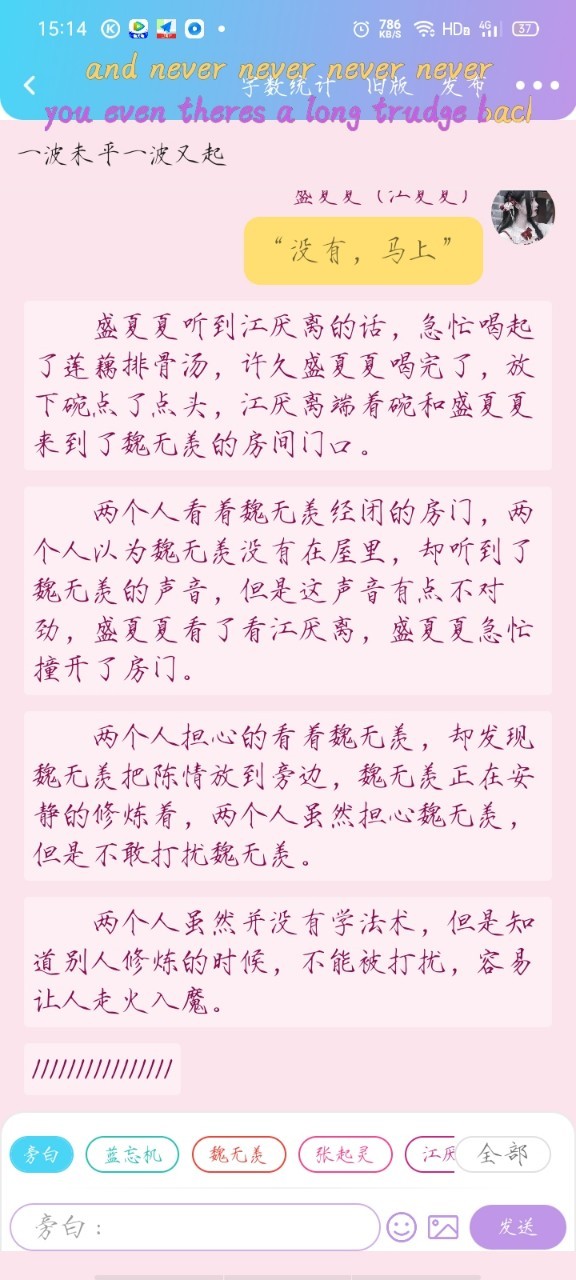 15:14
786
KB/S
HD
4G
37
and never never never never
字数统计 旧版 发布
you even theres a long trudge bacl
一波未平一波又起
盛夏夏（江夏夏）
“没有，马上”
盛夏夏听到江厌离的话，急忙喝起
了莲藕排骨汤，许久盛夏夏喝完了，放
下碗点了点头，江厌离端着碗和盛夏夏
来到了魏无羡的房间门口。
两个人看着魏无羡经闭的房门，两
个人以为魏无羡没有在屋里，却听到了
魏无羡的声音，但是这声音有点不对
劲，盛夏夏看了看江厌离，盛夏夏急忙
撞开了房门。
两个人担心的看着魏无羡，却发现
魏无羡把陈情放到旁边，魏无羡正在安
静的修炼着，两个人虽然担心魏无羡，
但是不敢打扰魏无羡。
两个人虽然并没有学法术，但是知
道别人修炼的时候，不能被打扰，容易
让人走火入魔。
////////////////
旁白 蓝忘机 魏无羡 张起灵 江厌 全部
旁白： 发送